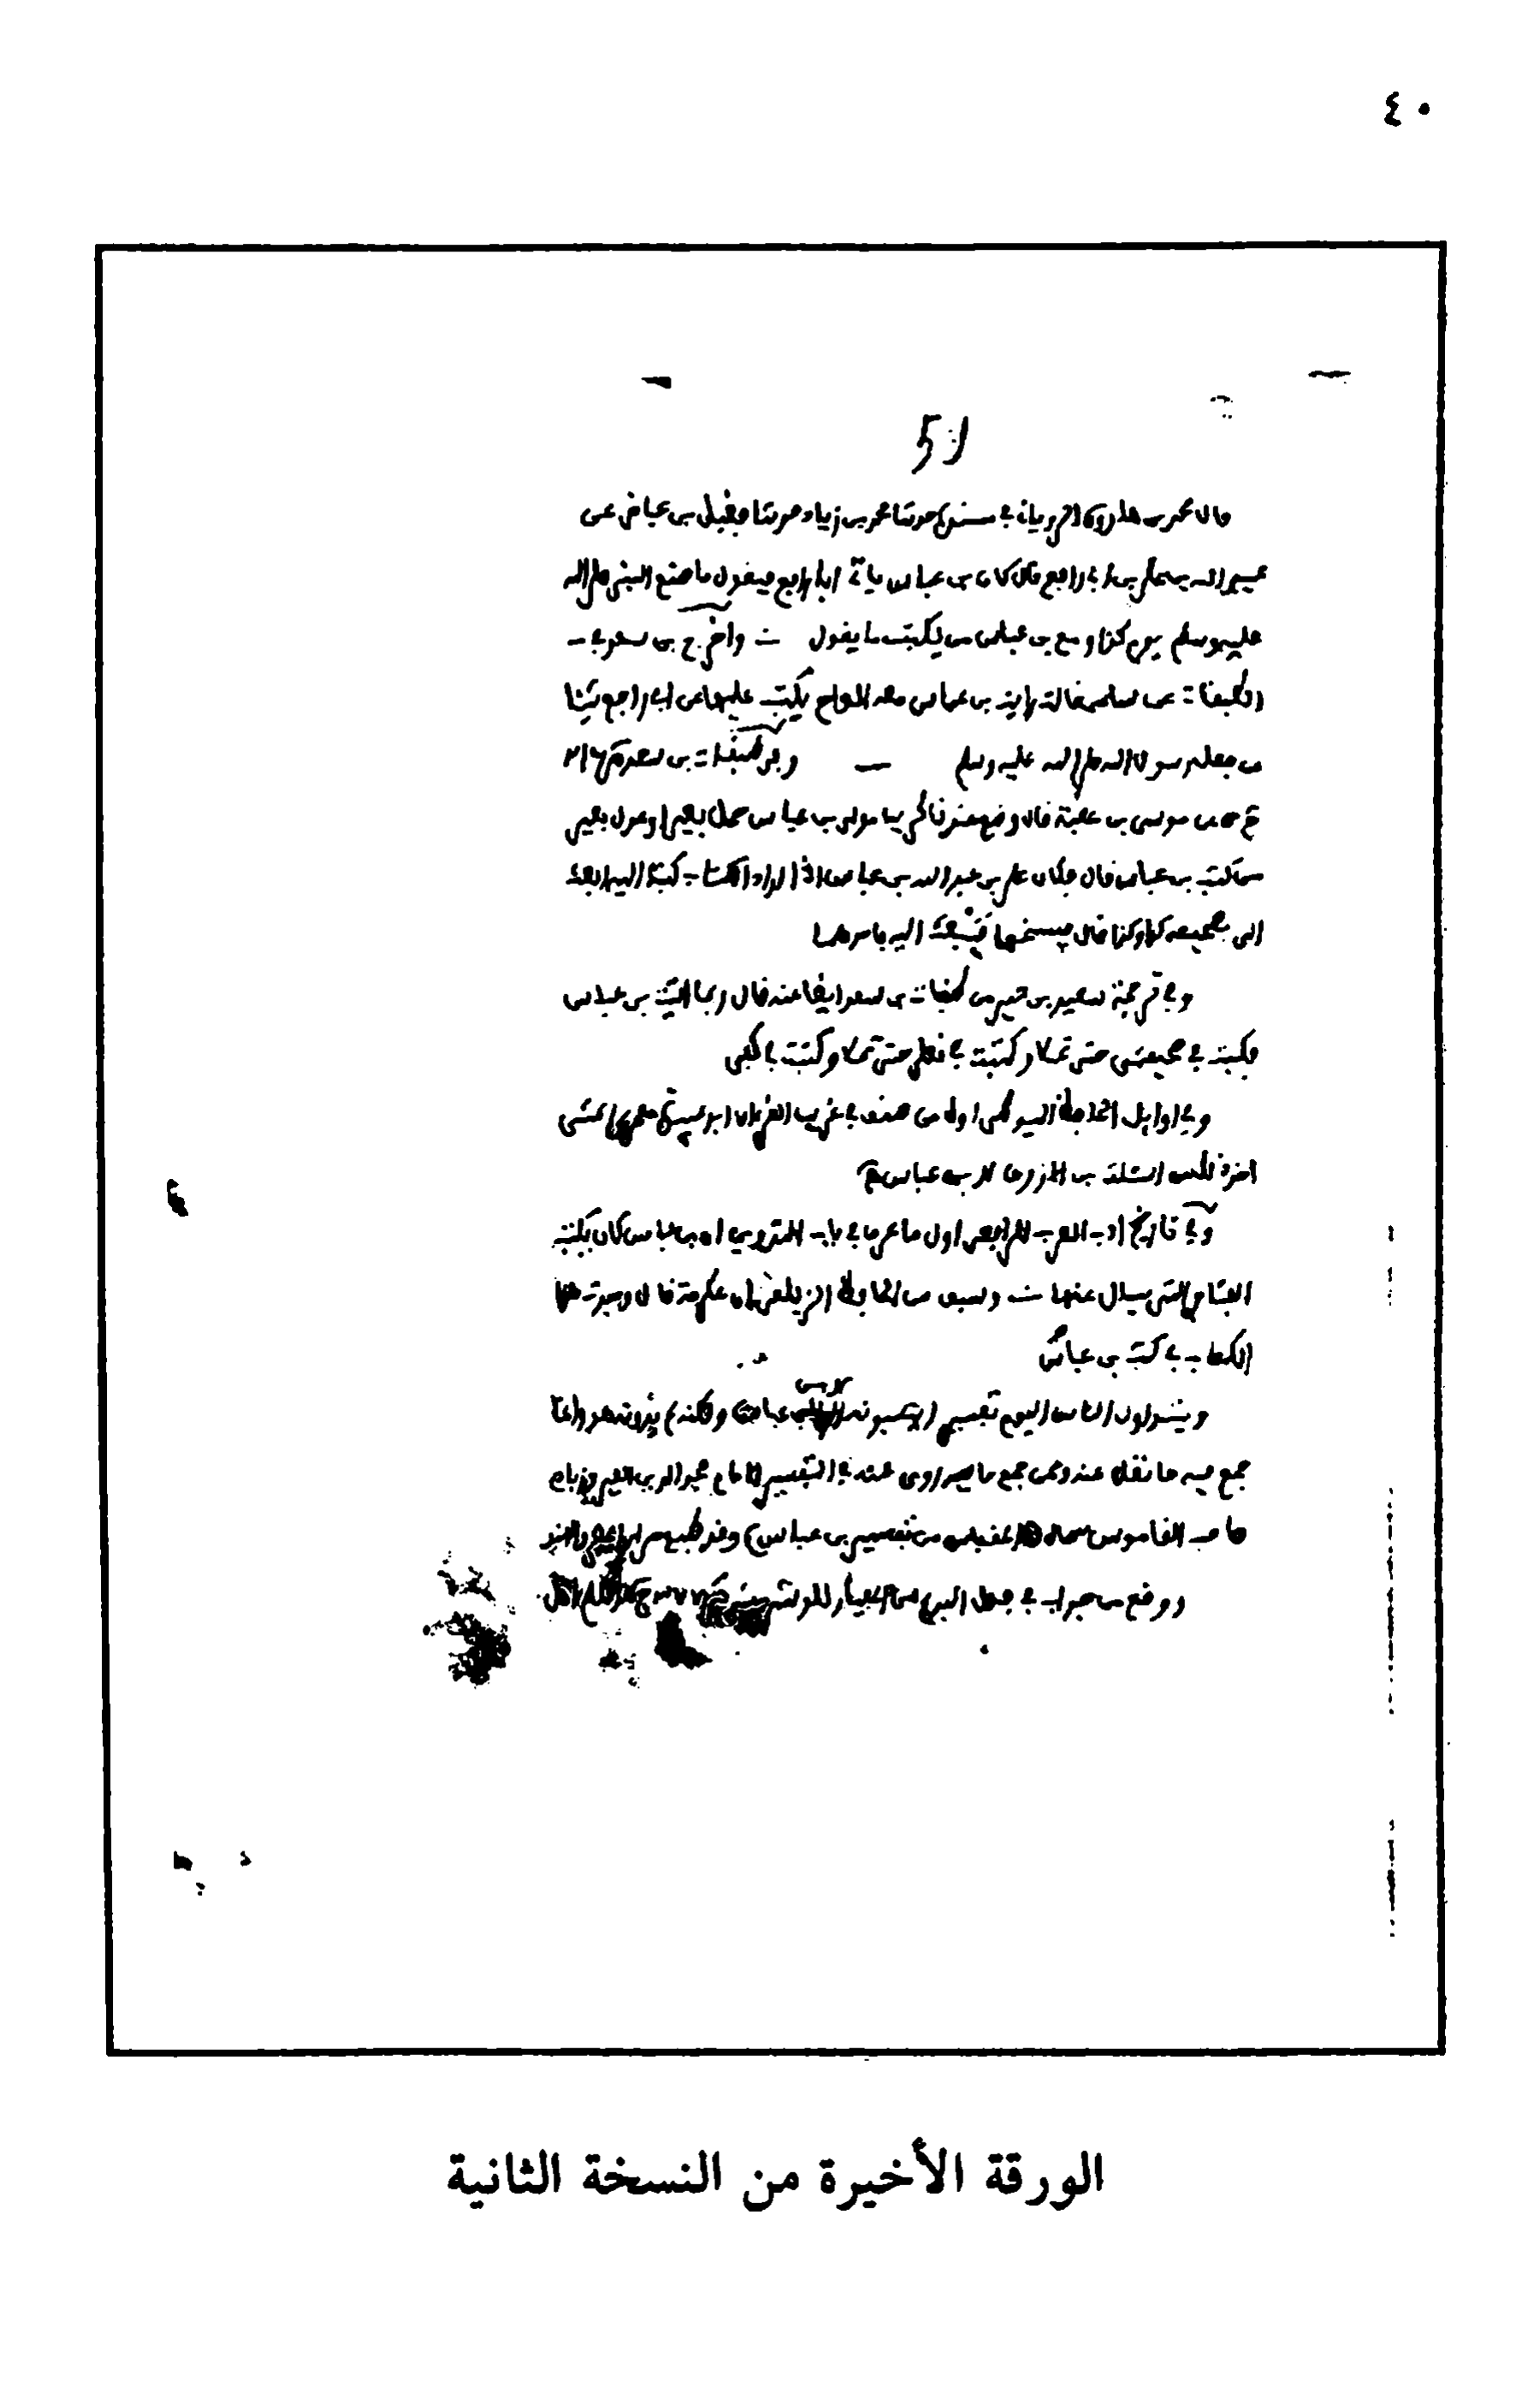 ٤٠
51
قال محمد بن هارون الروياني في مسنده حدثنا محمد بن زياد حدثنا فضيل بن عياض عن
عبيد الله بن علي بن أبي رافع قال كان بن عباس ياتي ابا رافع فيقول ما صنع النبي صلى الله
عليه وسلم يوم كذا ومع بن عباس من يكتب ما يقول واخرج بن سعد في
الطبقات عن سلمى قالت رايت بن عباس معه الواح يكتب عليها عن ابي رافع شيئا
من فعل رسول الله صلى الله عليه وسلم وفي طبقات بن سعد ص ٢١٦
ج عن موسى بن عقبة قال وضع عندنا كريب مولى بن عباس حمل بعير او عدل بعير
من كتب بن عباس قال فكان علي بن عبد الله بن عباس اذا اراد الكتاب كتب اليه ابعث
الي بصحيفة كذا وكذا قال فينسخها فيبعث اليه باحدهما
وفي ترجمة سعيد بن جبير من طبقات بن سعد ايضا عنه قال ربما اتيت بن عباس
فكتبت في صحيفتي حتى تملا وكتبت في نعلي حتى تملا وكتبت في كفي
وفي اوايل الحافظ السيوطي اول من صنف في غريب القران ابو عبيدة معمر بن المثنى
اخذ ذلك من اسئلة بن الازرق لابن عباس
وفي تاريخ ادب العرب للرافعي اول ما عرف في باب التدوين ان بن عباس كان يكتب
الفتاوي التي يسال عنها وسبق عن الحافظ الزيلعي ان عكرمة قال وجدت هذا
الكتاب في كتب بن عباس
ويتداول الناس اليوم تفسير ينسبونه لابن عباس ولكنه لم يدونه هو وانما
جمع فيه ما نقل عنه وممن جمع ما روى عنه في التفسير الامام مجد الدين الفيروزبادي
صاحب القاموس سماه المقباس من تفسير بن عباس وقد طبع
ووقع من جواب في المعيار للونشريسي
الورقة الأخيرة من النسخة الثانية